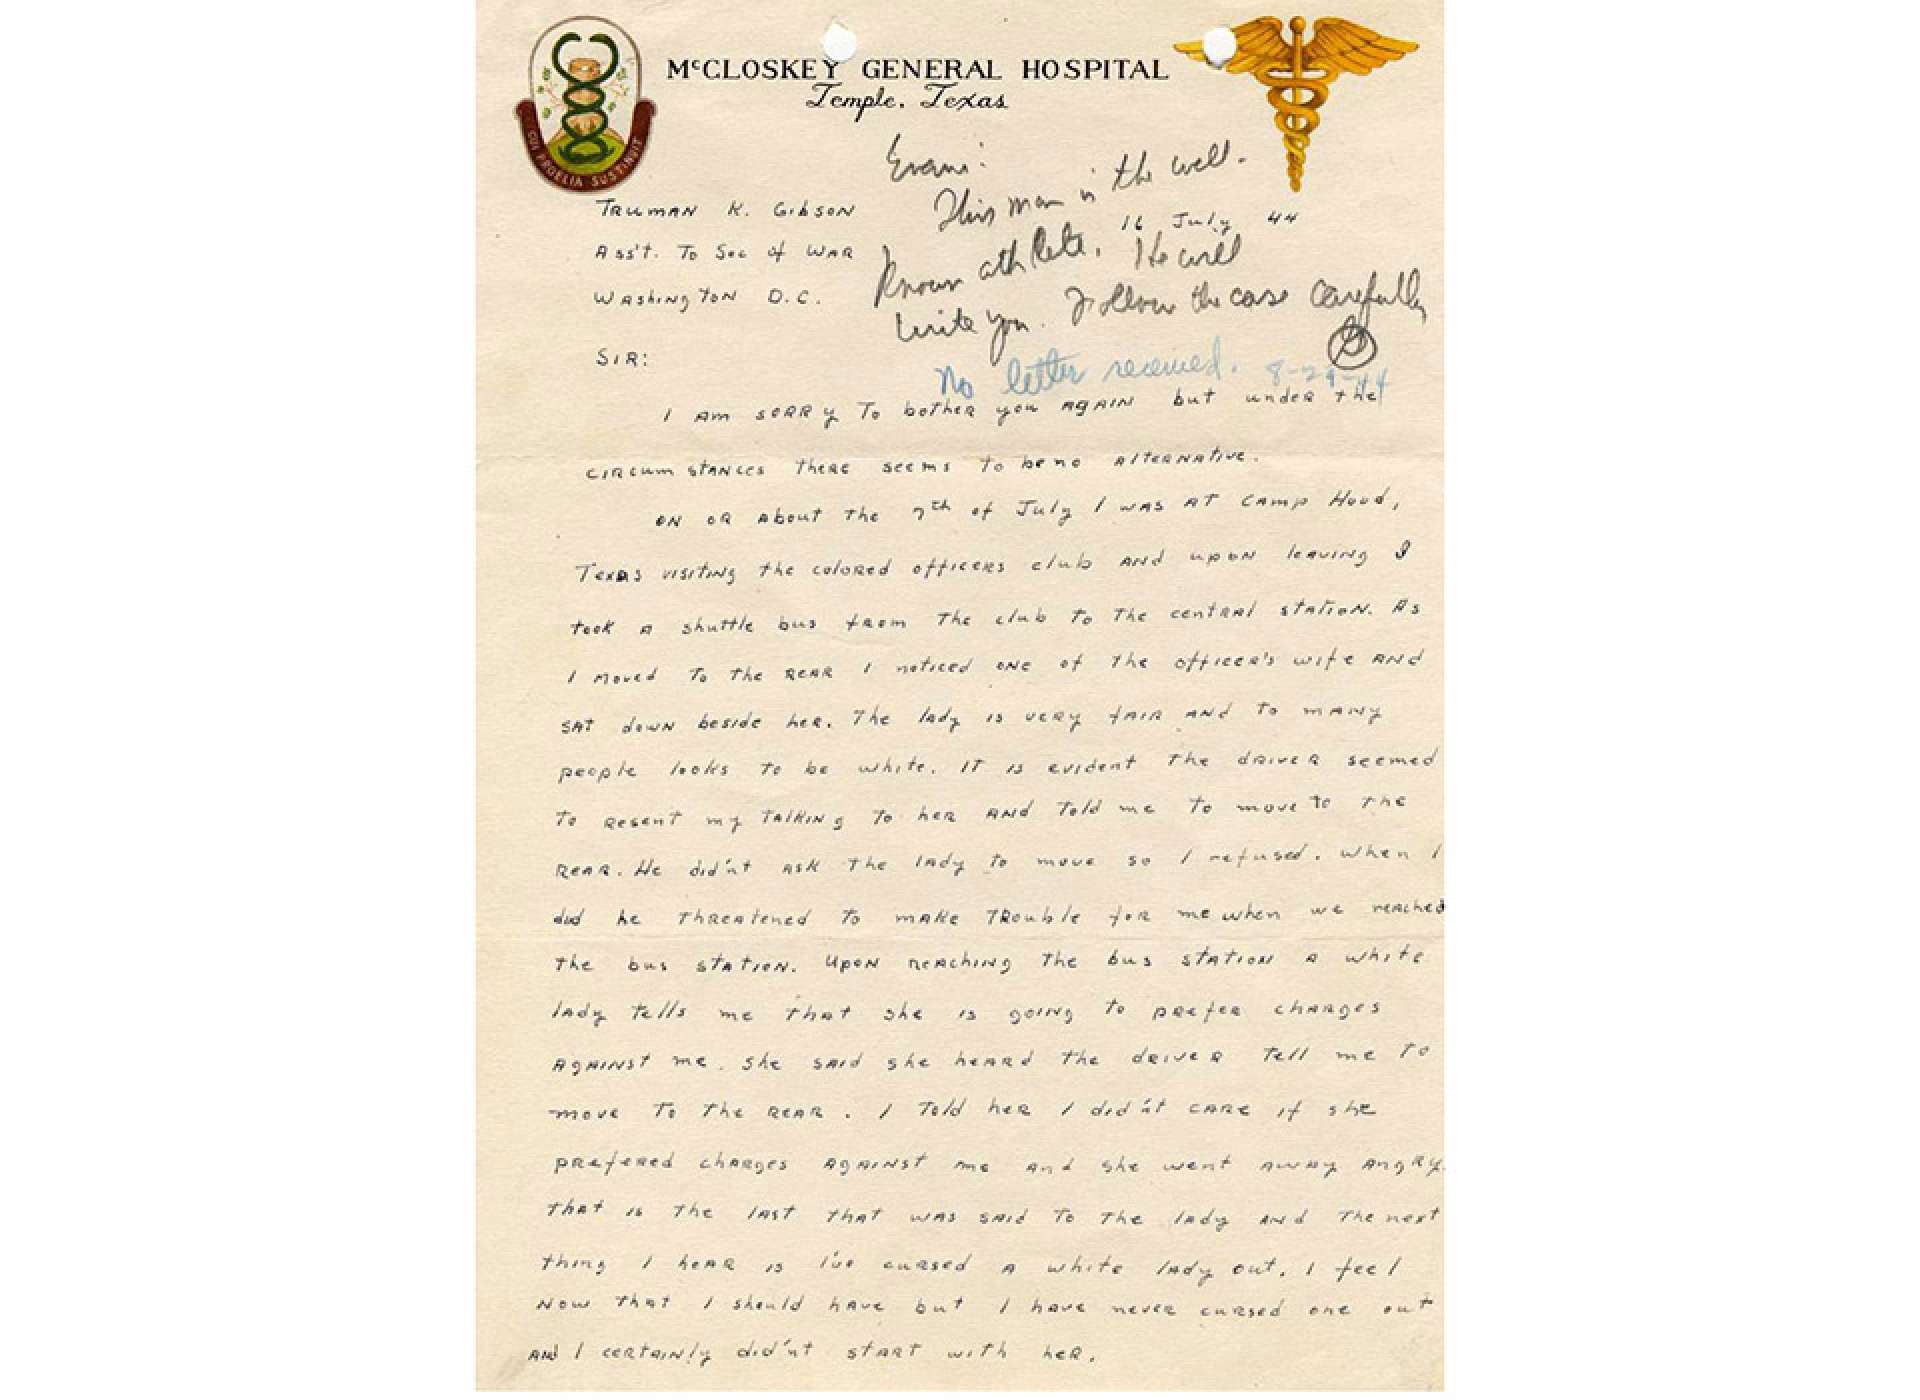 McCLOSKEY GENERAL HOSPITAL
Temple, Texas
CUI PROELIA SUSTINUIT
Evans:
This man is the well-
known athlete. He will
write you. Follow the case carefully
G
No letter received. 8-29-44
16 July 44
TRUMAN K. GIBSON
Ass't. To Sec of WAR
Washington D.C.
SIR:
I am sorry to bother you again but under the
circumstances there seems to be no alternative.
On or about the 7th of July I was at Camp Hood,
Texas visiting the colored officers club and upon leaving I
took a shuttle bus from the club to the central station. As
I moved to the rear I noticed one of the officer's wife and
sat down beside her. The lady is very fair and to many
people looks to be white. It is evident the driver seemed
to resent my talking to her and told me to move to the
rear. He did'nt ask the lady to move so I refused. When I
did he threatened to make trouble for me when we reached
the bus station. Upon reaching the bus station a white
lady tells me that she is going to prefer charges
against me. She said she heard the driver tell me to
move to the rear. I told her I did'nt care if she
prefered charges against me and she went away angry.
That is the last that was said to the lady and the next
thing I hear is I've cursed a white lady out. I feel
now that I should have but I have never cursed one out
and I certainly did'nt start with her.